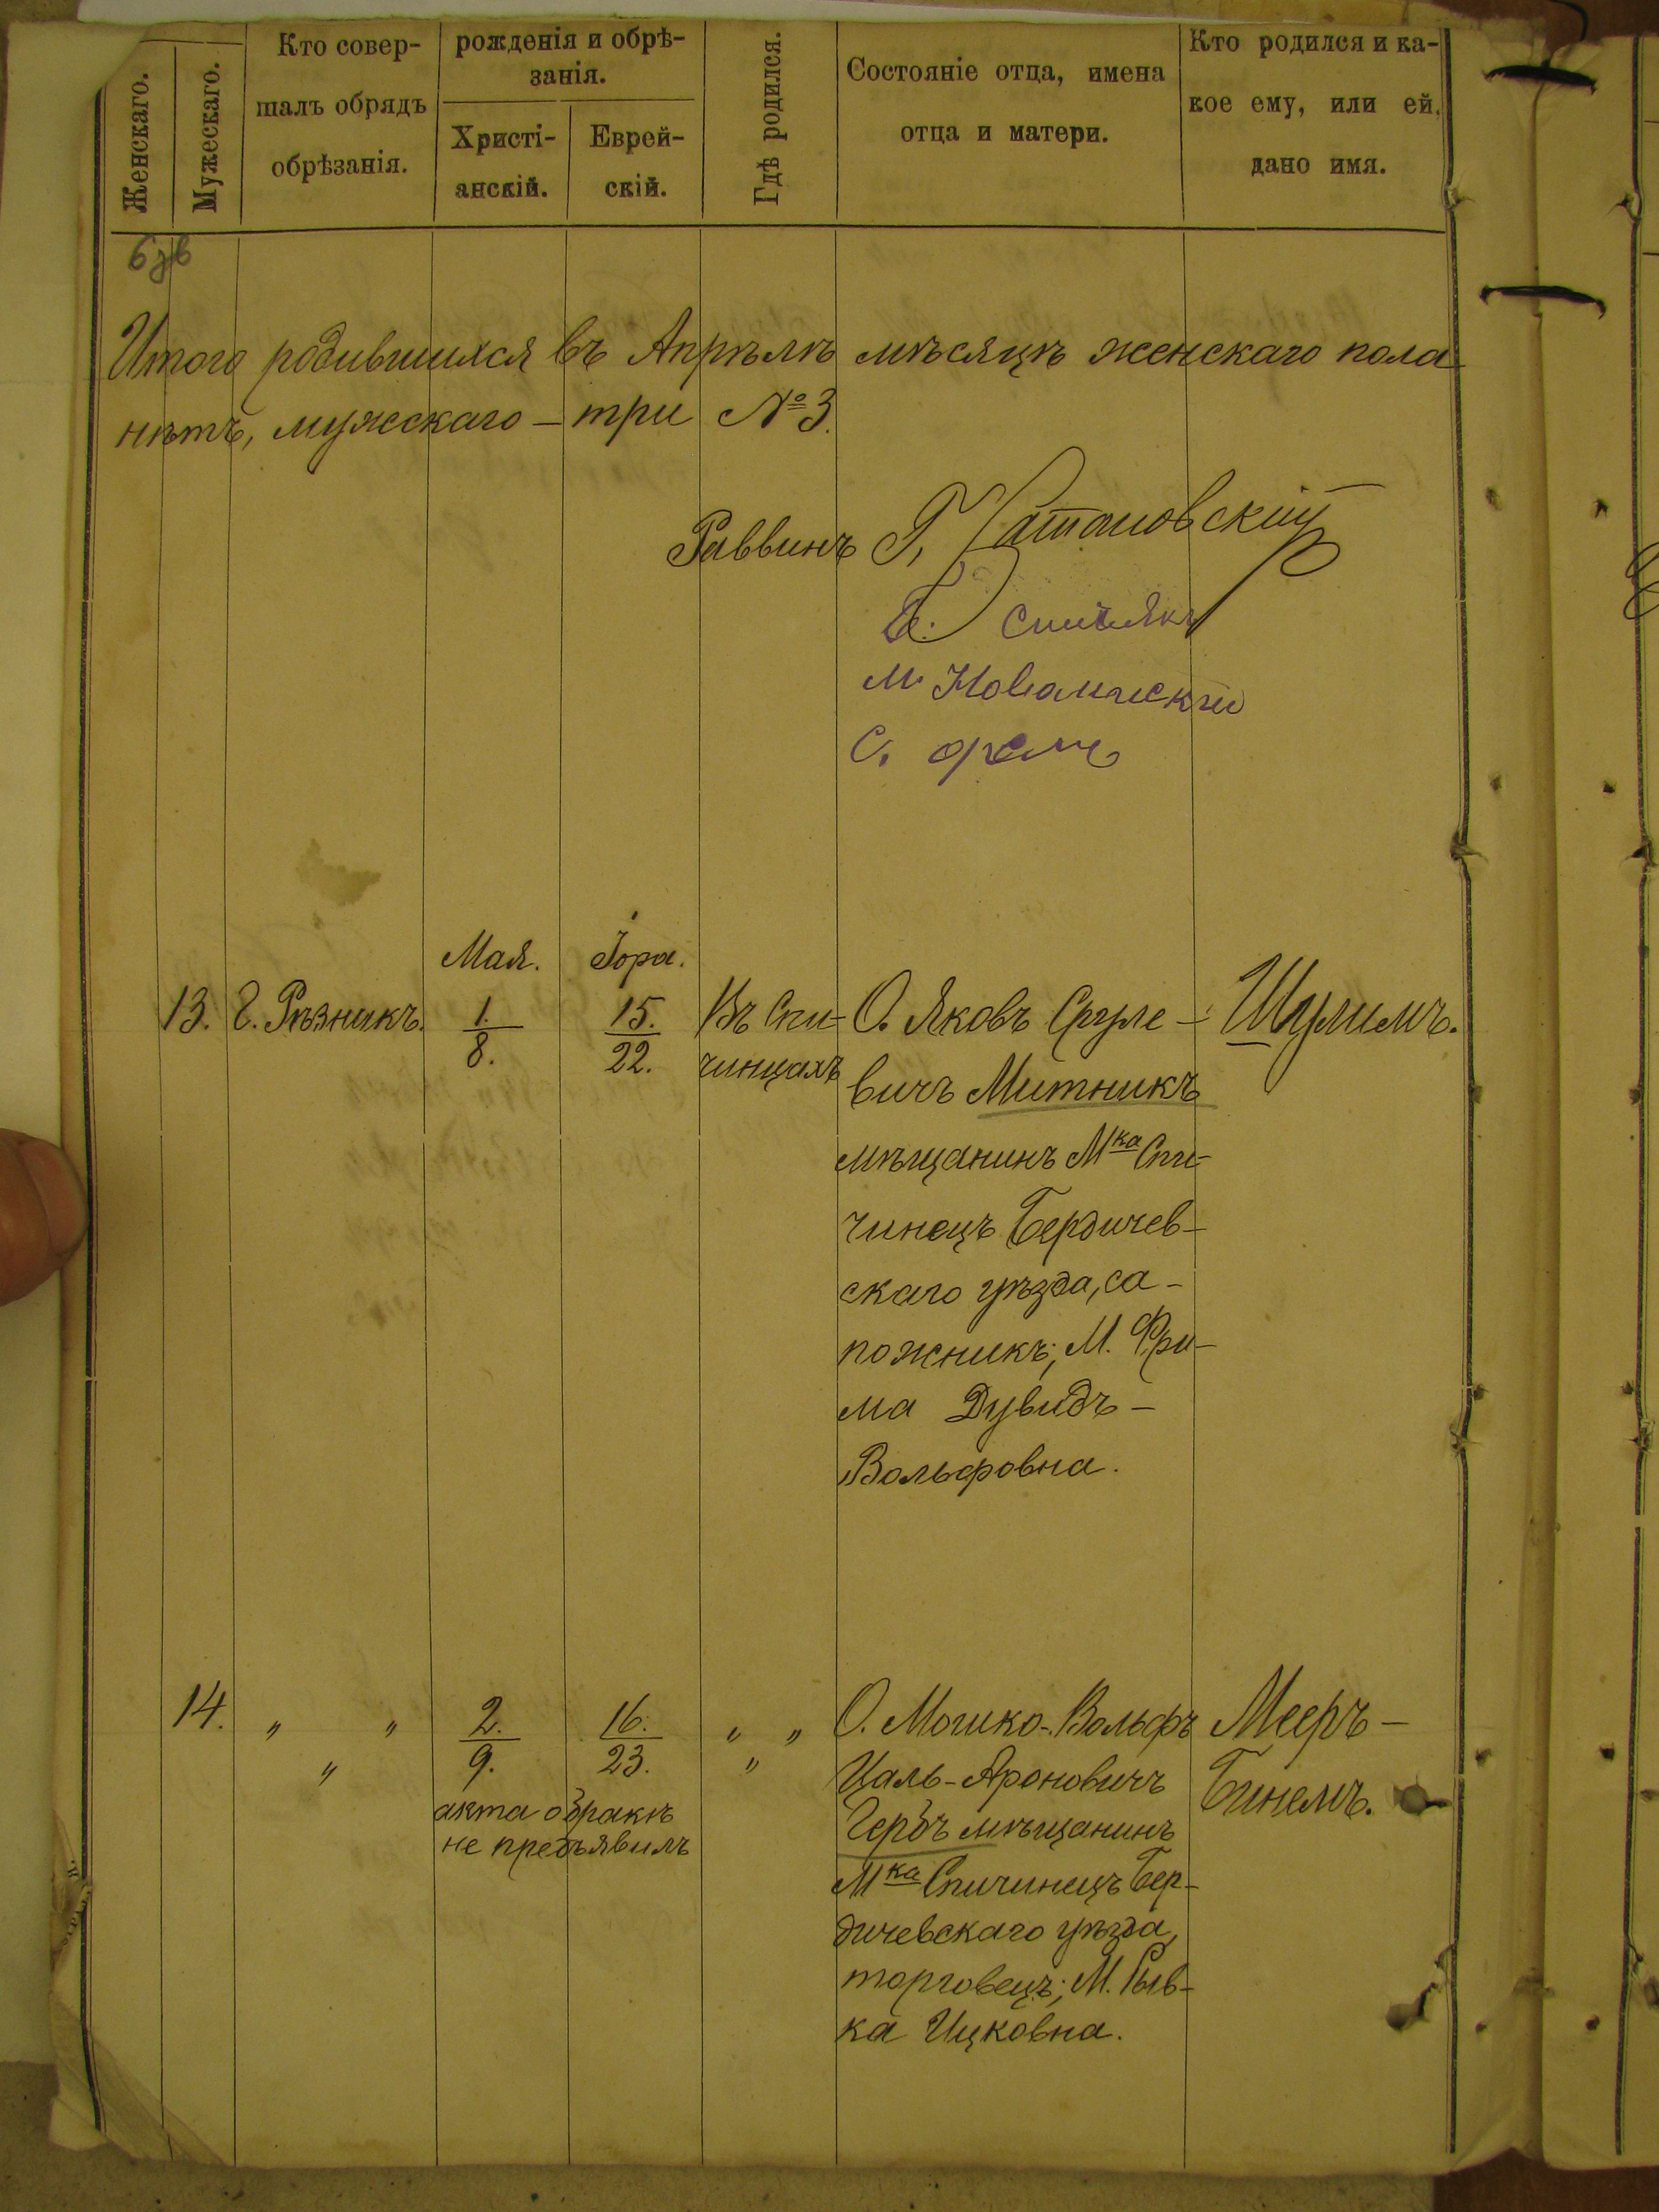 Женскаго.
Мужескаго.
Кто совер-
шалъ обрядъ
обрѣзанія.
рожденія и обрѣ-
занія.
Христі-
анскій.
Еврей-
скій.
Гдѣ родился.
Состояніе отца, имена
отца и матери.
Кто родился и ка-
кое ему, или ей,
дано имя.
Итого родившихся въ Апрѣлѣ мѣсяцѣ женскаго пола
нѣтъ, мужскаго – три № 3.
Раввинъ Г.
М.
С.
Мая.
Іора.
13.
Г. Рѣзникъ.
1.
8.
15.
22.
Въ Спи-
чинцахъ
О. Яковъ Сруле-
вичъ Митникъ
мѣщанинъ Мка Спи-
чинецъ Бердичев-
скаго уѣзда, са-
пожникъ; М. Фри-
ма Дувидъ-
Вольфовна.
Шулимъ.
14.
" "
"
2.
9.
16.
23.
акта о бракѣ
не предъявилъ
" "
"
О. Мошко-Вольфъ
Цаль-Ароновичъ
Гербъ мѣщанинъ
Мка Спичинецъ Бер-
дичевскаго уѣзда,
торговецъ; М. Рыв-
ка Ицковна.
Мееръ-
Бинемъ.